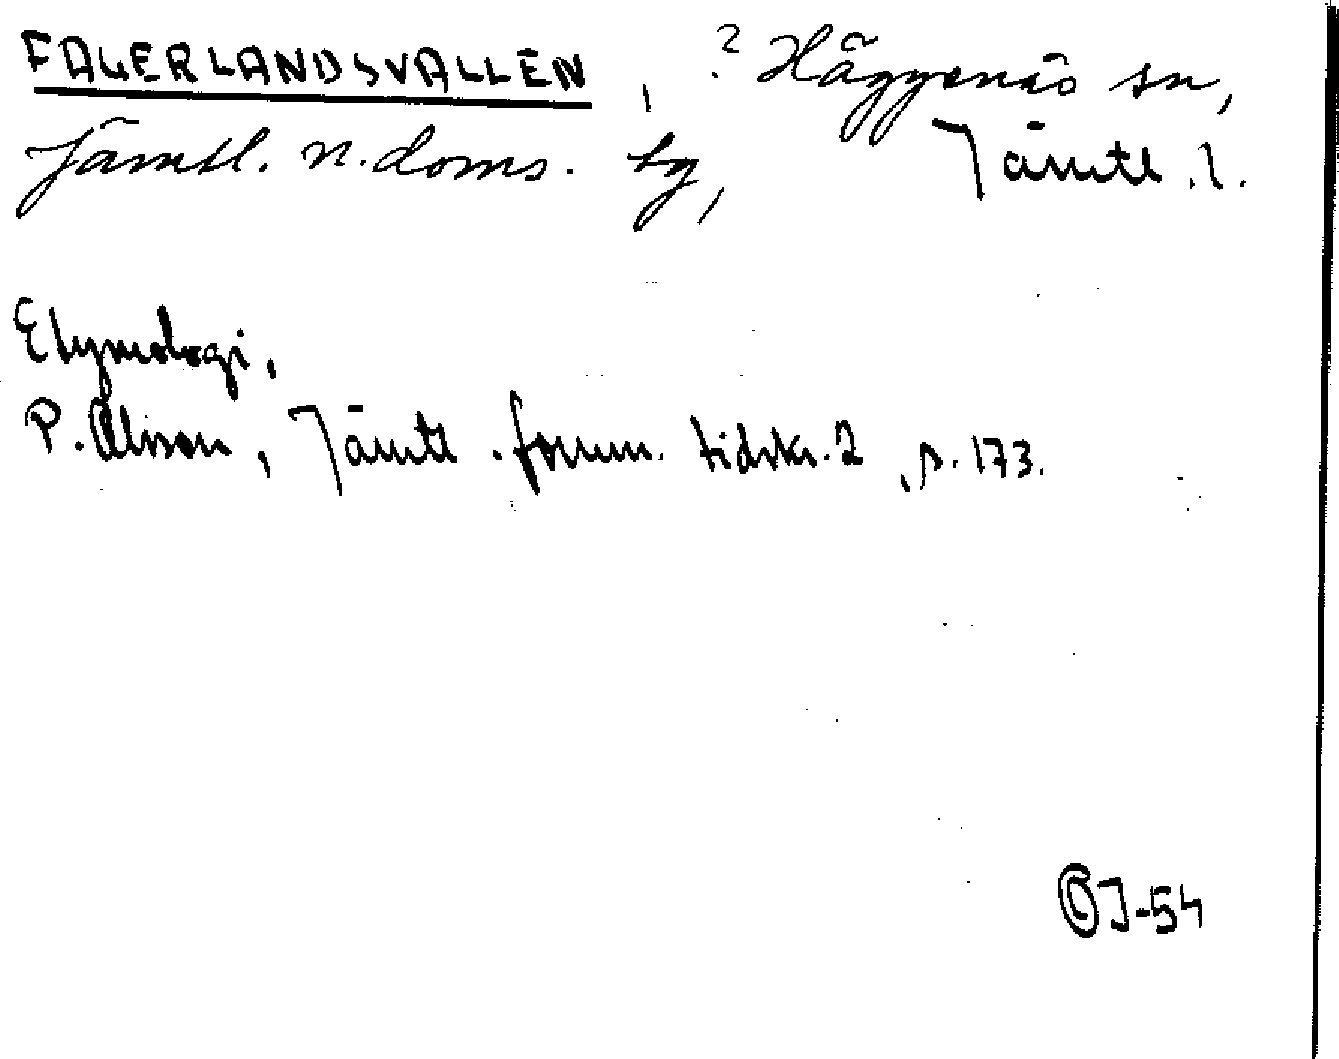 FAGERLANDSVALLEN, ? Häggenås sn,
Jämtl. n. doms. tg, Jämtl. l.
Etymologi,
P. Olsson, Jämtl. fornm. tidskr. 2, s. 173.
J-54